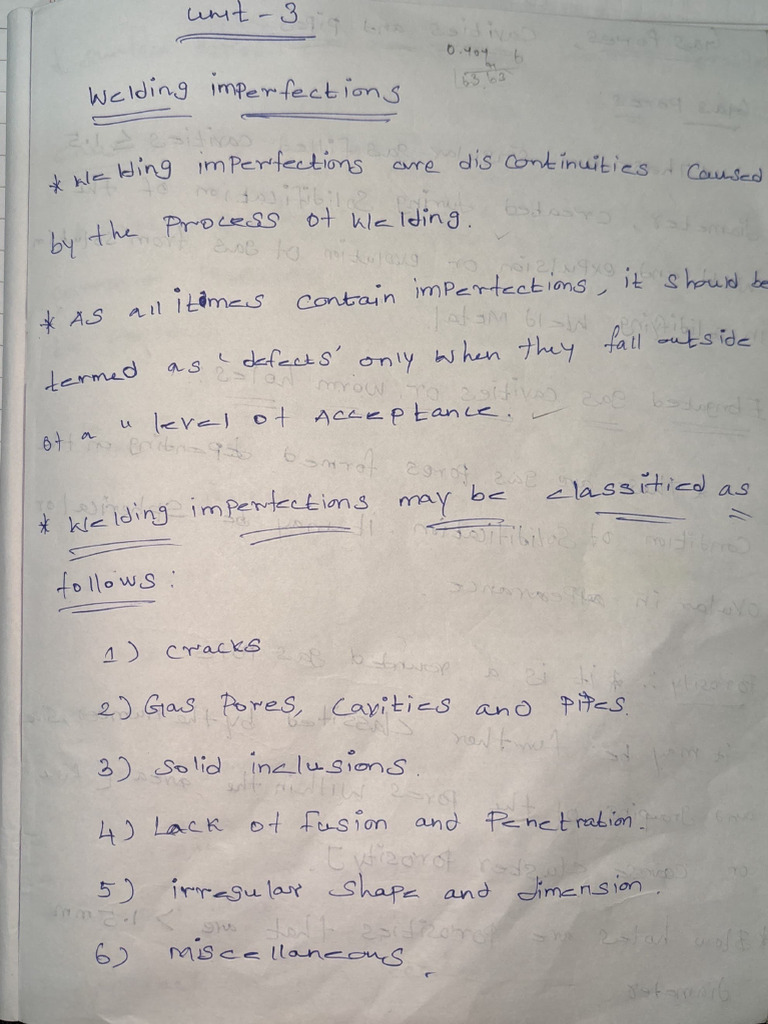 unit - 3
0.404 6
63.63
Welding imperfections
* Welding imperfections are dis continuities caused
by the process of welding.
* As all itmes contain imperfections, it should be
termed as 'defects' only when they fall outside
of a " level of Acceptance.
* Welding imperfections may be classified as
follows:
1) cracks
2) Gas Pores, Cavities and Pipes.
3) Solid inclusions.
4) Lack of fusion and Penetration.
5) irregular shape and dimension.
6) Miscellaneous.